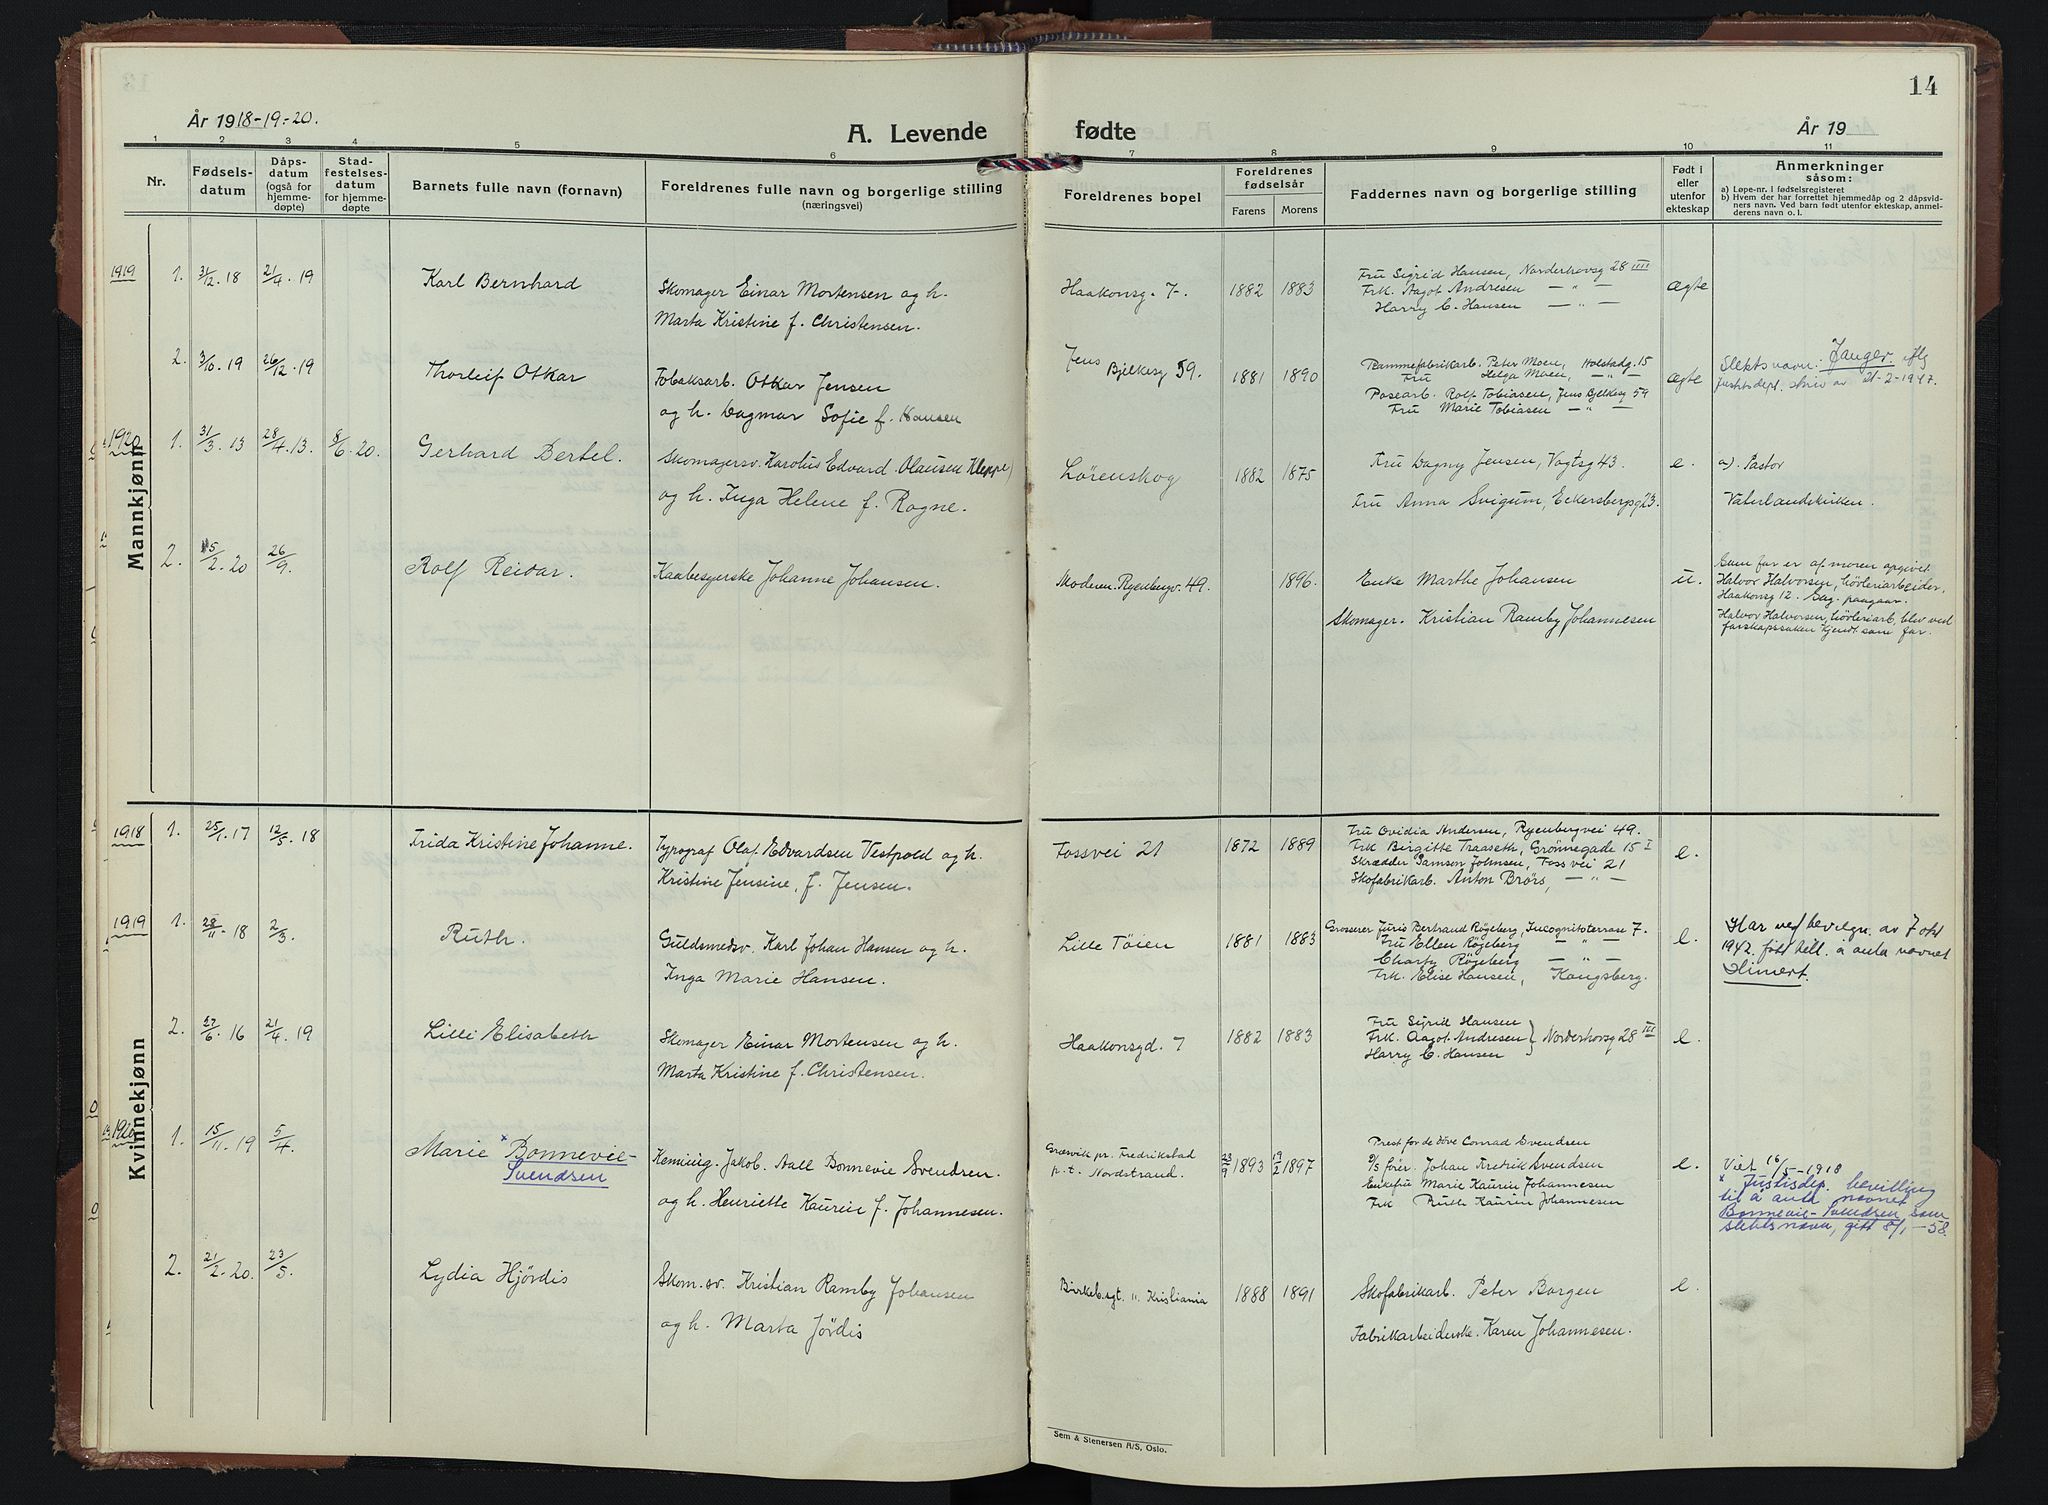 År 1918-19-20.
A. Levende
1 2 3 4 5 6
Nr.
Fødsels-
datum
Dåps-
datum
(også for
hjemme-
døpte)
Stad-
festelses-
datum
for hjemme-
døpte
Barnets fulle navn (fornavn)
Foreldrenes fulle navn og borgerlige stilling
(næringsvei)
Mannkjønn
1919
1. 31/12. 18 21/4. 19 Karl Bernhard
Skomager Einar Mortensen og h.
Marta Kristine f. Christensen.
2. 3/10. 19 26/12. 19 Thorleif Otkar
Tobaksarb. Otkar Jensen
og h. Dagmar Sofie f. Hansen
1920
1. 31/3. 13 28/4. 13. 8/6. 20. Gerhard Bertel.
Skomagersv. Karolus Edvard Olausen Kleppe)
og h. Inga Helene f. Rogne.
2. 15/2. 20 26/9. Rolf Reidar.
Kaabesyerske Johanne Johansen.
Kvinnekjønn
1918
1. 25/1. 17 12/5. 18 Frida Kristine Johanne.
Typograf Olaf Edvardsen Vestpold og h.
Kristine Jensine, f. Jensen.
1919
1. 28/11 - 18 2/3. Ruth.
Guldsmedsv. Karl Johan Hansen og h.
Inga Marie Hansen.
2. 27/6. 16 21/4. 19 Lilli Elisabeth
Skomager Einar Mortensen og h.
Marta Kristine f. Christensen.
1920
1. 15/11. 19 5/4. Marie × Bonnevie-
Svendsen
Kemiing. Jakob. Aall Bonnevie Svendsen.
og h. Henriette Kaurin f. Johannesen.
2. 21/2. 20. 23/5. Lydia Hjørdis
Skom. sv. Kristian Ramby Johansen
og h. Marta Jørdis
14
fødte
År 19
7 8 9 10 11
Foreldrenes bopel
Foreldrenes
fødselsår
Farens Morens
Faddernes navn og borgerlige stilling
Født i
eller
utenfor
ekteskap
Anmerkninger
såsom:
a) Løpe-nr. i fødselsregisteret
b) Hvem der har forrettet hjemmedåp og 2 dåpsvid-
ners navn. Ved barn født utenfor ekteskap, anmel-
derens navn o. l.
Haakonsg. 7. 1882 1883 ægte
Fru Sigrid Hansen, Norderhovsg 28 III
Frk. Aagot Andresen — " —
Harry C. Hansen — " —
Jens
Bjelkesg 59. 1881 1890 ægte
Rammefabrikarb. Peter Moen, Holstadg. 15
Fru Helga Moen, — " —
Posearb. Rolf Tobiasen, Jens Bjelkesg 59
Fru Marie Tobiasen — " —
Slektsnavn: Janger iflg
justisdept. skriv av 21-2-1947.
Lørenskog 1882 1875 e.
Fru Dagny Jensen, Vogtsg 43.
Fru Anna Svigum, Eckersbergsg 23.
a). Pastor
Vaterlandskirken.
Moderen. Ryenbergv. 49. 1896. u.
Enke Marthe Johansen
Skomager. Kristian Ramby Johannesen
Som far er af moren opgivet
Halvor Halvorsen, høvleriarbeider,
Haakonsg 12. Sag. paagaar.
Halvor Halvorsen, høvleriarb, blev ved
farskapssaken kjendt som far.
Fossvei 21 1872 1889 e.
Fru Ovidia Andersen, Ryenbergvei 49.
Frk Birgitte Traaseth, Grønnegade 15 I
Skrædder Samson Johnsen, Fossvei 21
Skofabrikarb. Anton Brørs, — " —
Lille Tøien 1881 1883 e.
Grosserer Juris Bertrand Røgeberg, Incognitoterrase 7.
Fru Ellen Røgeberg — " —
Charty Røgeberg — " —
Frk. Elise Hansen, Kongsberg.
Har ved bevilgn. av 7 okt
1942. fått till. å anta navnet
Himert.
Haakonsgd. 7 1882 1883 e.
Fru Sigrid Hansen
Frk. Aagot Andresen } Norderhovsg 28 III
Harry C. Hansen
Græsvik pr. Fredrikstad
p.t. Nordstrand. 23/9 1893 19/2 1897 e.
Prest for de døve Conrad Svendsen
D/S fører. Johan Fredrik Svendsen
Enkefru Marie Kaurin Johannesen
Frk Ruth Kaurin Johannesen
Viet 16/5-1918
× Justisdep. bevilling
til å anta navnet
Bonnevie-Svendsen som
slektsnavn, gitt 8/1 - 58.
Birkeb. sgt. 11. Kristiania 1888 1891 e.
Skofabrikarb. Peter Borgen
Fabrikarbeiderske. Karen Johannesen.
Sem & Stenersen A/S, Oslo.